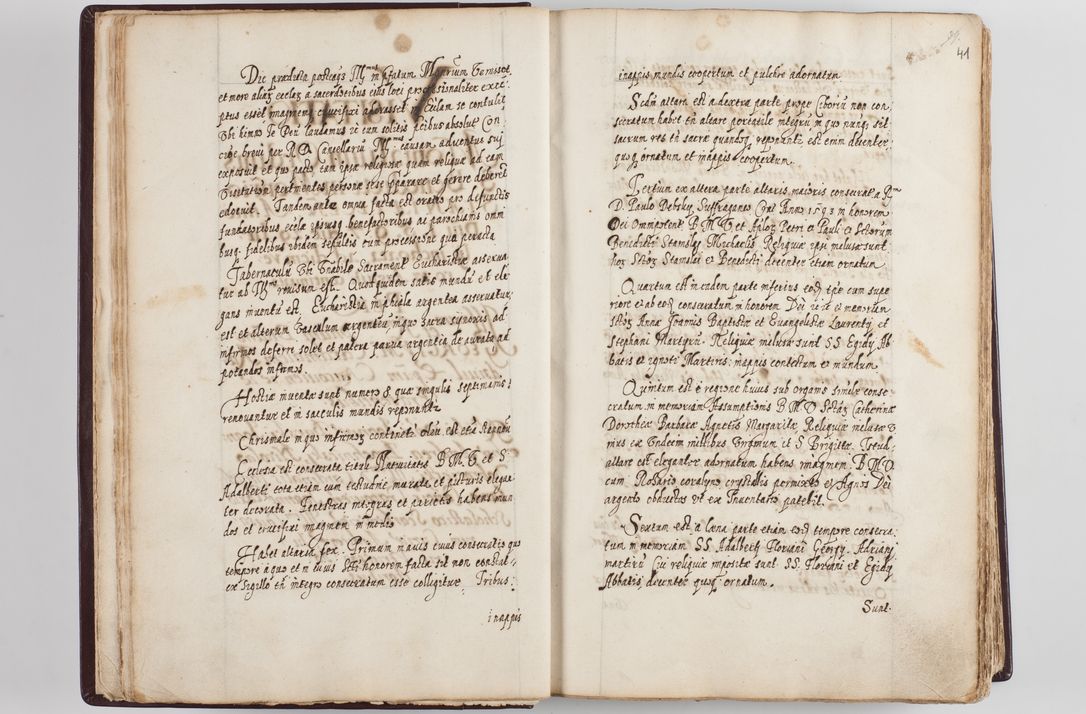 Die prædicta postqua Illmus in Monrium venisset
et more aliaz ecclaz a sacerdotibus eius loci processionaliter exce:
ptus esset imaginem crucifixi adorasset in Eclam se contulit
Ubi himno Te Deu laudamus et cum solitis pcibus absoluto Con
cione brevi per R D Cancellariu Illmi causam adventus sui
exposuit et quo pacto tam ipse religiosæ quam reliquæ ad eam
Visitation pertinentes personæ sese pparare et gerere deberet
edocuit. Tandem ante omnia facta est oratio pro defunctis
fundatoribus ecclæ ipsiusq benefactoribus ac parochianis omni
busq fidelibus ibidem sepultis cum processione qua peracta
Tabernaculu Vbi Vnabile Sacrament Eucharistiæ asserva
tur ab Illmo reuisum est. Quod quidem satis mundu et ele
gans inuentu est. Eucharistia in phiala argentea asseruatur,
est et alterum Vasculum argenteu in quo sacra synaxis ad
infirmos deferre solet et patera parua argentea de aurata ad
potandos infirmos.
Hostiæ inuentæ sunt numero 8 quæ singulis septimanis
renouantur et in sacculis mundis reponunt
Chrismale in quo infirmor continet Oleu est etia stanneu
Ecclesia est consecrata tituli Natiuitatis B M V et S
Adalberti tota etiam cum testudine murata et picturis elegan
ter decorata. Fenestras integras et parietes habens mun
dos et crucifixi imaginem in medio
Habet altaria sex. Primum in auis cuius consecratio quo
tempore a quo et in cuius Sti honorem facta sit non constat
ex sigillo tn integro consecratum esse colligitur. Tribus
inappis

41
inappis mundis coopertum et pulchre adornatum.
Scdm altare est a dextra parte prope Ciboriu non con,
secratum habet tn altare portatile integru in quo nunq sit
sacrum res tn sacræ quandoq reponunt est enim decenter,
quoq ornatum et mappis coopertum.
Tertium ex altera parte altaris maioris consecrat a Rmo
D. Paulo Dębsky Suffraganeo Crac Anno 1593 in honorem
Dei Omnipotent B M V et Aplor Petri et Pauli et Sctorum
Benedicti Stanislai Michaelis. Reliquiæ ipsi inclusæ sunt
hor Sctor Stanislai et Benedicti decenter etiam ornatum
Quartum est in eadem parte inferius eod tpre cum supe
riore et ab eod consecratum in honorem Dei et in memoriam
Sctor Annæ Joannis Baptistæ et Euangelistæ Laurentij et
Stephani Martyru. Reliquiæ inclusæ sunt SS Egidy Ab
batis et ignoti Martiris: inappis contectum et mundum
Quintum est e regione huius sub organo simile conse
cratum in memoriam Assumptionis B M V Sctar Catherinæ
Dorotheæ Barbaræ Agnetis Margaritæ Reliquiæ inclusæ V
nius ex Vndecim millibus Virginum et S Brigittæ. Istud
altare est eleganter adornatum habens imaginem B M V
cum Rosario coralyno crystallis permixto et Agnos Dei
argento obductos ut ex Inuentario patebit.
Sextum est a læua parte etiam eod tempore consecra
tum in memoriam SS Adalberti Floriani Georgy. Adriani
martiru. Cui reliquiæ impositæ sunt SS. Floriani et Egidy
Abbatis, decenter quoq ornatum.
Sunt